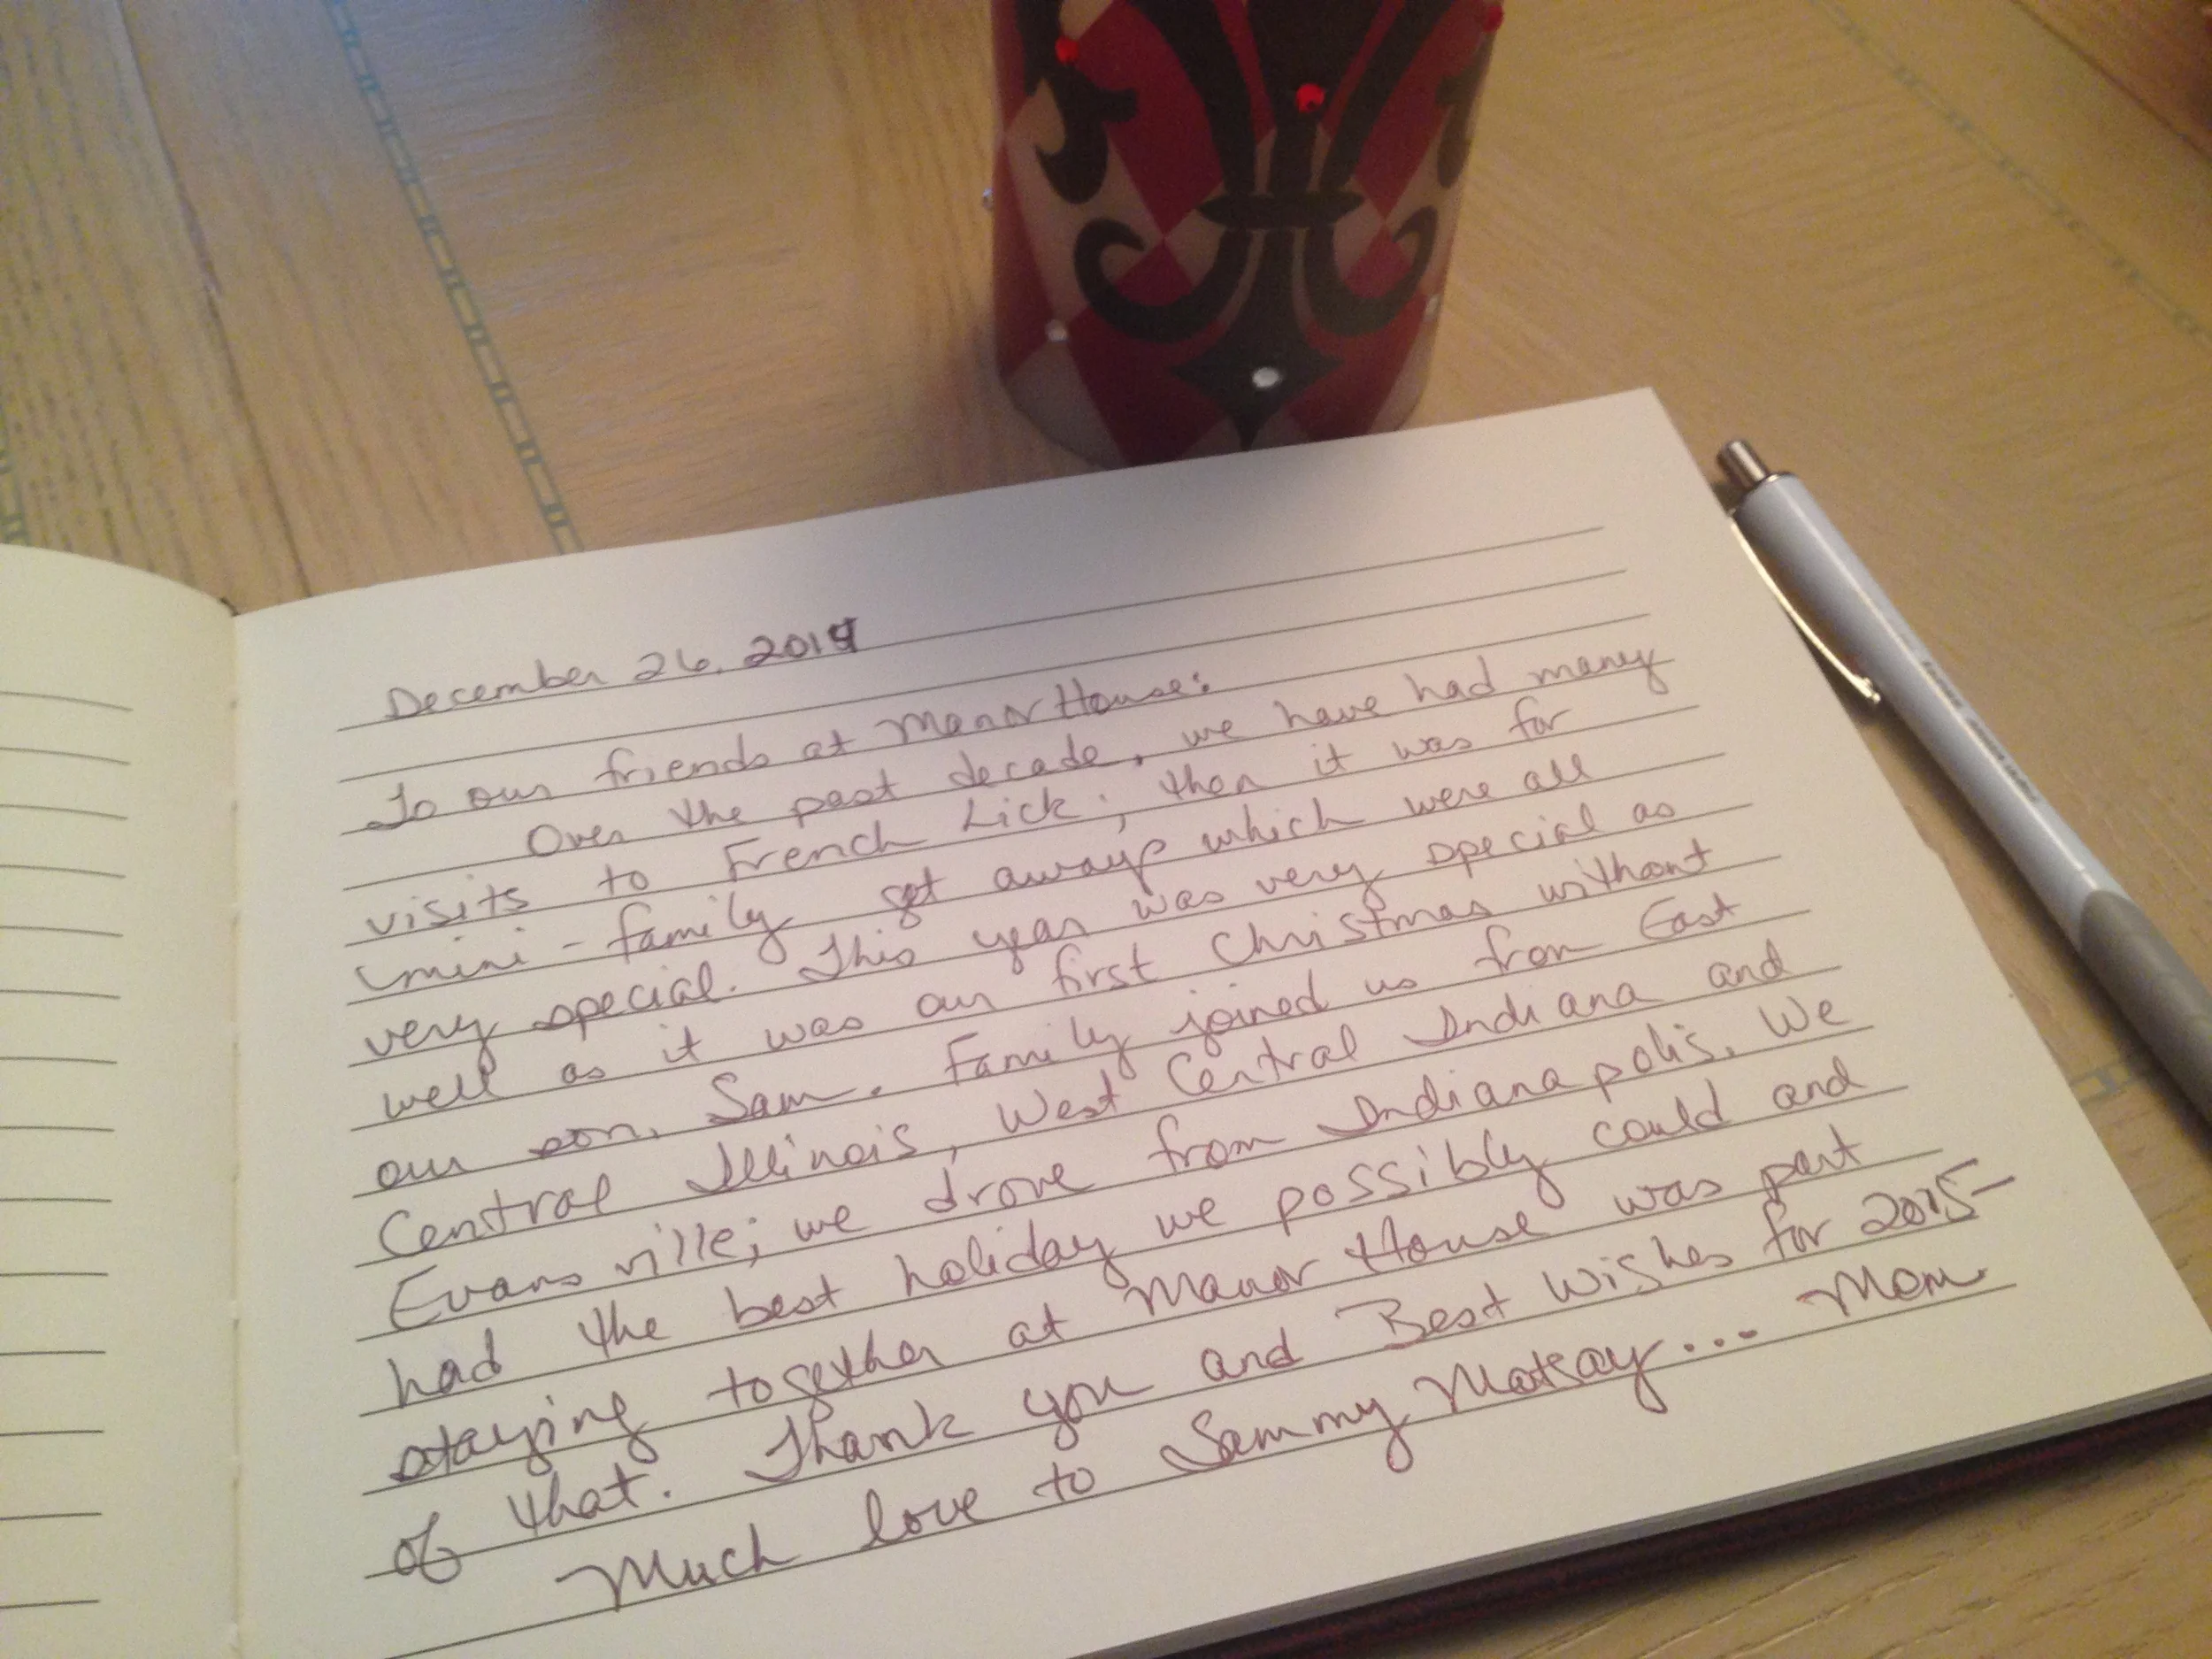 December 26, 2014
To our friends at Manor House:
Over the past decade, we have had many
visits to French Lick; then it was for
mini-family get aways which were all
very special. This year was very special as
well as it was our first Christmas without
our son, Sam. Family joined us from East
Central Illinois, West Central Indiana and
Evansville; we drove from Indianapolis. We
had the best holiday we possibly could and
staying together at Manor House was part
of that. Thank you and Best Wishes for 2015-
Much love to Sammy ... Mom